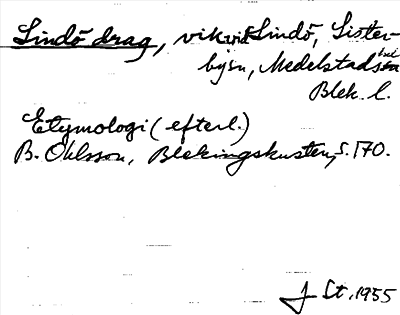 Lindö drag, vik vid Lindö, Lister-
byn, Medelstads hd
Blek. l.
Etymologi (efterl.)
B. Ohlsson, Blekingskusten, s. 170.
J St. 1955